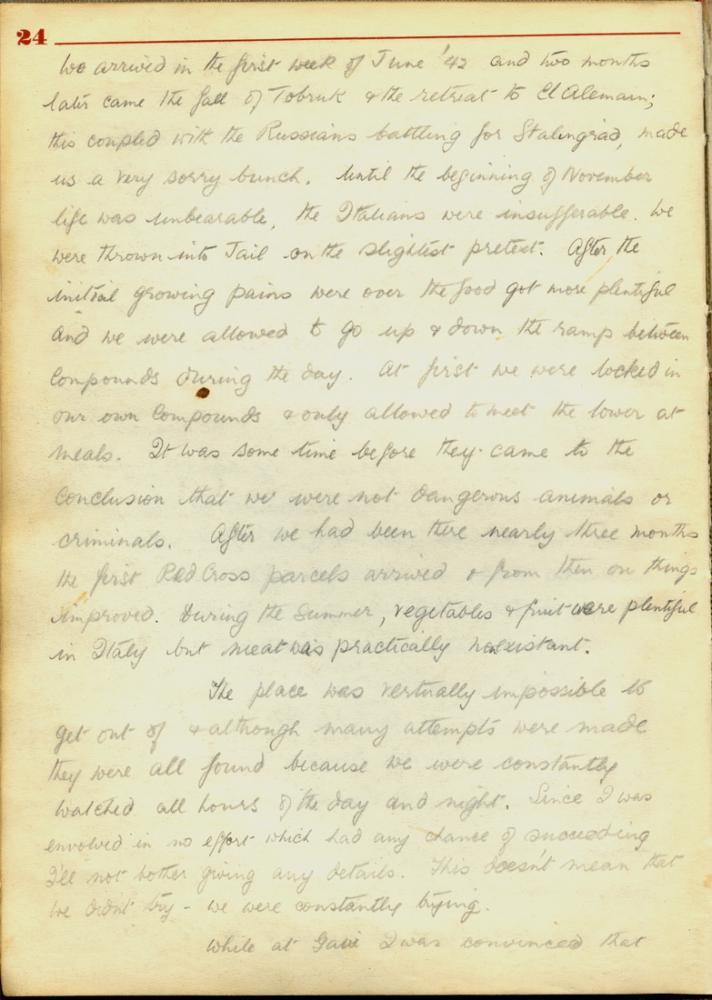 24
We arrived in the first week of June '42 and two months
later came the fall of Tobruk & the retreat to El Alemain;
this coupled with the Russians battling for Stalingrad, made
us a very sorry bunch. Until the beginning of November
life was unbearable, the Italians were insufferable. We
were thrown into Jail on the slightest pretext. After the
initial growing pains were over the food got more plentiful
and we were allowed to go up & down the ramp between
Compounds during the day. At first we were locked in
our own Compounds & only allowed to meet the lower at
meals. It was some time before they came to the
Conclusion that we were not dangerous animals or
criminals. After we had been there nearly three months
the first Red Cross parcels arrived & from then on things
improved. During the Summer, vegetables & fruit were plentiful
in Italy but meat was practically nonexistant.
The place was vertually impossible to
get out of & although many attempts were made
they were all found because we were constantly
watched all hours of the day and night. Since I was
envolved in no effort which had any chance of succeeding
I'll not bother giving any details. This doesn't mean that
we didn't try - we were constantly trying.
While at Gavi I was convinced that